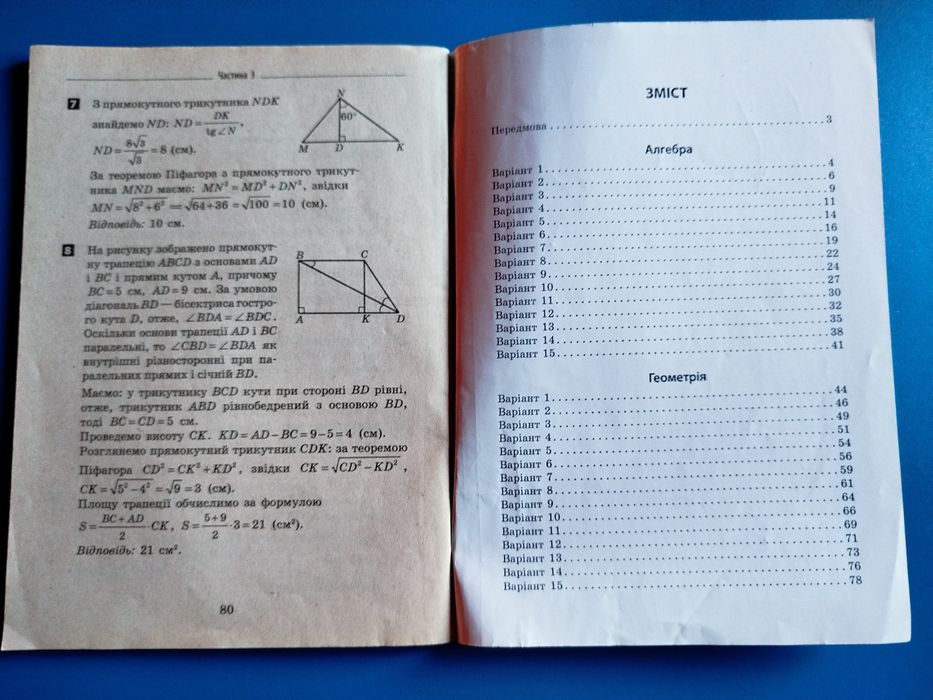 Частина 3
7 З прямокутного трикутника NDK
знайдемо ND: ND = DK / tg∠N,
ND = 8√3 / √3 = 8 (см).
N
60°
M D K
За теоремою Піфагора з прямокутного трикут-
ника MND маємо: MN² = MD² + DN², звідки
MN = √8² + 6² = √64 + 36 = √100 = 10 (см).
Відповідь: 10 см.
8 На рисунку зображено прямокут-
ну трапецію ABCD з основами AD
і BC і прямим кутом A, причому
BC = 5 см, AD = 9 см. За умовою
діагональ BD — бісектриса гостро-
го кута D, отже, ∠BDA = ∠BDC.
Оскільки основи трапеції AD і BC
паралельні, то ∠CBD = ∠BDA як
внутрішні різносторонні при па-
ралельних прямих і січній BD.
B C
A K D
Маємо: у трикутнику BCD кути при стороні BD рівні,
отже, трикутник ABD рівнобедрений з основою BD,
тоді BC = CD = 5 см.
Проведемо висоту CK. KD = AD − BC = 9 − 5 = 4 (см).
Розглянемо прямокутний трикутник CDK: за теоремою
Піфагора CD² = CK² + KD², звідки CK = √CD² − KD²,
CK = √5² − 4² = √9 = 3 (см).
Площу трапеції обчислимо за формулою
S = BC + AD / 2 · CK, S = 5 + 9 / 2 · 3 = 21 (см²).
Відповідь: 21 см².
80
ЗМІСТ
Передмова 3
Алгебра
Варіант 1 4
Варіант 2 6
Варіант 3 9
Варіант 4 11
Варіант 5 14
Варіант 6 16
Варіант 7 19
Варіант 8 22
Варіант 9 24
Варіант 10 27
Варіант 11 30
Варіант 12 32
Варіант 13 35
Варіант 14 38
Варіант 15 41
Геометрія
Варіант 1 44
Варіант 2 46
Варіант 3 49
Варіант 4 51
Варіант 5 54
Варіант 6 56
Варіант 7 59
Варіант 8 61
Варіант 9 64
Варіант 10 66
Варіант 11 69
Варіант 12 71
Варіант 13 73
Варіант 14 76
Варіант 15 78